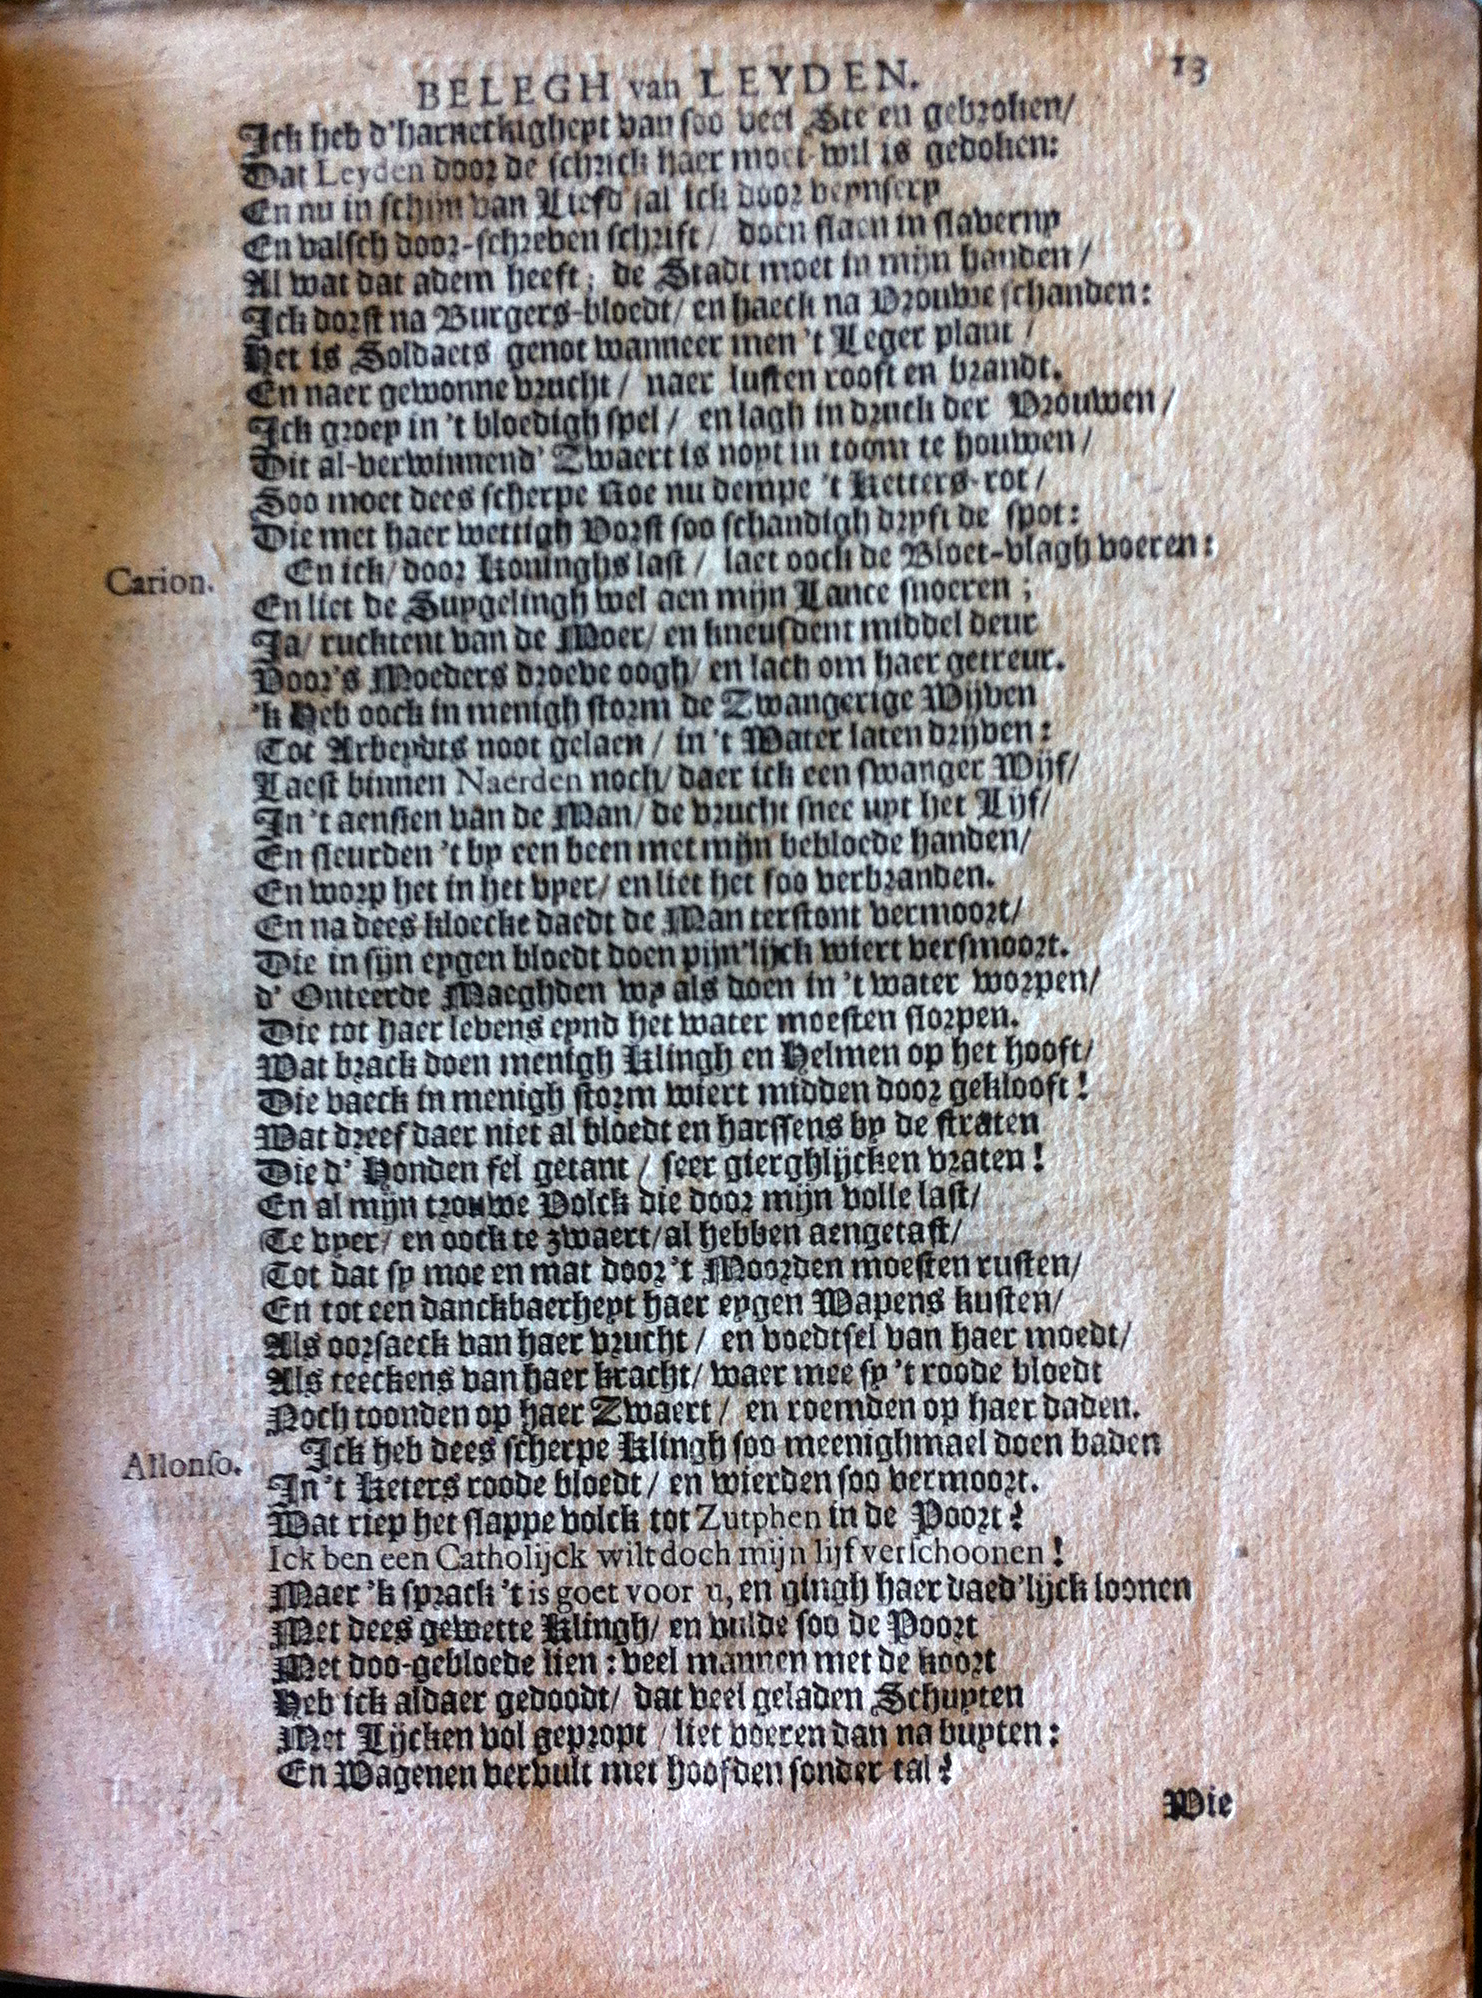 BELEGH van LEYDEN. 13
Ick heb d'harneckigheyt van soo veel Ste'en gebroken/
Dat Leyden door de schrick haer moet-wil is gedoken:
En nu in schijn van Liefd sal ick door veynsery
En valsch door-schreven schrift / doen slaen in slaverny
Al wat dat adem heeft; de Stadt moet in mijn handen /
Ick dorst na Burgers-bloedt/ en haeck na Vrouwe schanden:
Het is Soldaets genot wanneer men 't Leger plant /
En naer gewonne vrucht / naer lusten rooft en brandt.
Ick groey in 't bloedigh spel / en lagh in druck der Vrouwen /
Dit al-verwinnend' Zwaert is noyt in toom te houwen /
Soo moet dees scherpe Roe nu dempe 't Ketters-rot /
Die met haer wettigh Vorst soo schandigh dryft de spot:
Carion. En ick/ door Koninghs last / laet oock de Bloet-vlagh voeren:
En liet de Suygelingh wel aen mijn Lance snoeren ;
Ja/ rucktent van de Moer/ en kneusdent middel deur
Voor's Moeders droeve oogh/ en lach om haer getreur.
'k Heb oock in menigh storm de Zwangerige Wijven
Tot Arbeyts noot gelaen / in 't Water laten drijven :
Laest binnen Naerden noch/ daer ick een swanger Wijf/
In 't aensien van de Man/ de vrucht snee uyt het Lijf/
En sleurden 't by een been met mijn bebloede handen/
En worp het in het vyer/ en liet het soo verbranden.
En na dees kloecke daedt de Man terstont vermoort/
Die in sijn eygen bloedt doen pijn'lijck wiert versmoort.
d' Onteerde Maeghden wy als doen in 't water worpen/
Die tot haer levens eynd het water moesten slorpen.
Wat brack doen menigh Klingh en Helmen op het hooft/
Die vaeck in menigh storm wiert midden door geklooft !
Wat dreef daer niet al bloedt en harssens by de straten
Die d' Honden fel getant / seer gierghlijcken vraten !
En al mijn trouwe Volck die door mijn volle last/
Te vyer/ en oock te zwaert/ al hebben aengetast/
Tot dat sy moe en mat door 't Moorden moesten rusten/
En tot een danckbaerheyt haer eygen Wapens kusten/
Als oorsaeck van haer vrucht / en voedtsel van haer moedt/
Als teeckens van haer kracht/ waer mee sy 't roode bloedt
Noch toonden op haer Zwaert / en roemden op haer daden.
Allonso. Ick heb dees scherpe Klingh soo meenighmael doen baden
In 't Keters roode bloedt / en wierden soo vermoort.
Wat riep het slappe volck tot Zutphen in de Poort !
Ick ben een Catholijck wilt doch mijn lijf verschoonen !
Maer 'k sprack 't is goet voor u, en gingh haer daed'lijck loonen
Met dees gewette Klingh/ en vulde soo de Poort
Met doo-gebloede lien : veel mannen met de koort
Heb ick aldaer gedoodt/ dat veel geladen Schuyten
Met Lijcken vol gepropt / liet voeren dan na buyten :
En Wagenen vervult met hoofden sonder tal !
Wie